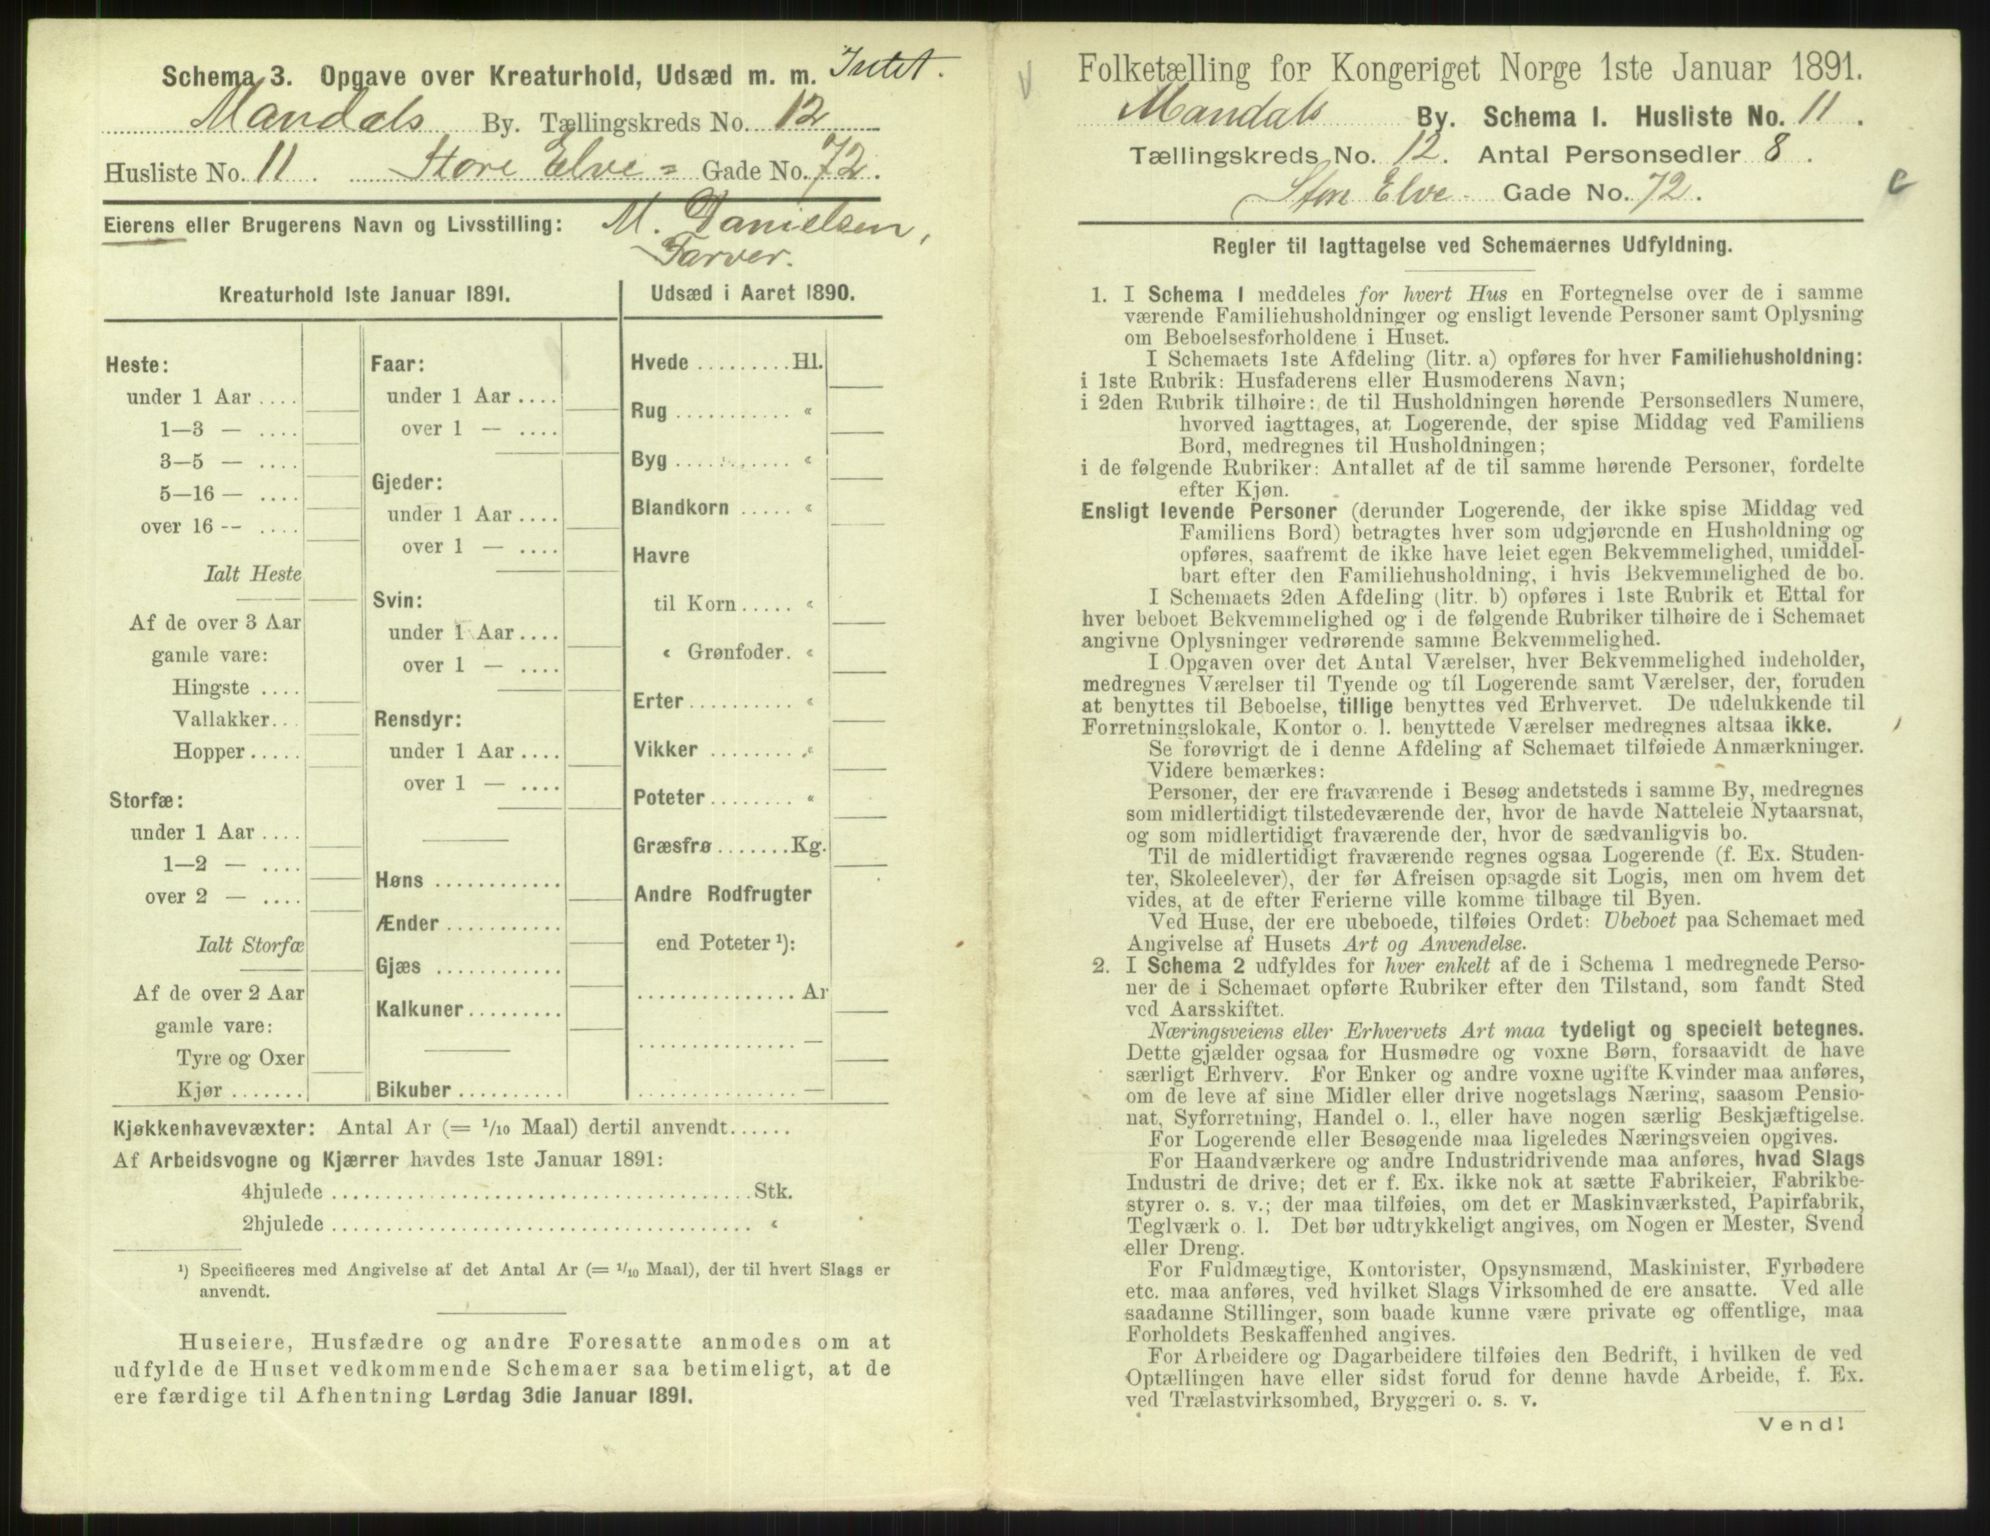 Schema 3. Opgave over Kreaturhold, Udsæd m. m. Intet.
Mandals By. Tællingskreds No. 12
Husliste No. 11. Store Elve = Gade No. 72.
Eierens eller Brugerens Navn og Livsstilling: M. Danielsen,
Farver.
Kreaturhold 1ste Januar 1891.
Heste:
under 1 Aar ....
1—3 — ....
3—5 — ....
5—16 — ....
over 16 -- ....
Ialt Heste
Af de over 3 Aar
gamle vare:
Hingste ....
Vallakker...
Hopper .....
Storfæ:
under 1 Aar ....
1—2 — ....
over 2 — ....
Ialt Storfæ
Af de over 2 Aar
gamle vare:
Tyre og Oxer
Kjør .......
Faar:
under 1 Aar ....
over 1 — ....
Gjeder:
under 1 Aar ....
over 1 — ....
Svin:
under 1 Aar ....
over 1 — ....
Rensdyr:
under 1 Aar ....
over 1 — ....
Høns ............
Ænder ...........
Gjæs ............
Kalkuner.........
Bikuber ..........
Udsæd i Aaret 1890.
Hvede .........Hl.
Rug ........... «
Byg ........... «
Blandkorn ..... «
Havre
til Korn..... «
« Grønfoder. «
Erter.......... «
Vikker ........ «
Poteter........ «
Græsfrø .......Kg.
Andre Rodfrugter
end Poteter ¹):
............... Ar
............... —
............... —
Kjøkkenhavevæxter: Antal Ar (= 1/10 Maal) dertil anvendt......
Af Arbeidsvogne og Kjærrer havdes 1ste Januar 1891:
4hjulede ........................................Stk.
2hjulede ........................................ «
¹) Specificeres med Angivelse af det Antal Ar (= 1/10 Maal), der til hvert Slags er
anvendt.
Huseiere, Husfædre og andre Foresatte anmodes om at
udfylde de Huset vedkommende Schemaer saa betimeligt, at de
ere færdige til Afhentning Lørdag 3die Januar 1891.
Folketælling for Kongeriget Norge 1ste Januar 1891.
Mandals By. Schema I. Husliste No. 11.
Tællingskreds No. 12. Antal Personsedler 8.
Stor Elve- Gade No. 72.
Regler til Iagttagelse ved Schemaernes Udfyldning.
1. I Schema 1 meddeles for hvert Hus en Fortegnelse over de i samme
værende Familiehusholdninger og ensligt levende Personer samt Oplysning
om Beboelsesforholdene i Huset.
I Schemaets 1ste Afdeling (litr. a) opføres for hver Familiehusholdning:
i 1ste Rubrik: Husfaderens eller Husmoderens Navn;
i 2den Rubrik tilhøire: de til Husholdningen hørende Personsedlers Numere,
hvorved iagttages, at Logerende, der spise Middag ved Familiens
Bord, medregnes til Husholdningen;
i de følgende Rubriker: Antallet af de til samme hørende Personer, fordelte
efter Kjøn.
Ensligt levende Personer (derunder Logerende, der ikke spise Middag ved
Familiens Bord) betragtes hver som udgjørende en Husholdning og
opføres, saafremt de ikke have leiet egen Bekvemmelighed, umiddel-
bart efter den Familiehusholdning, i hvis Bekvemmelighed de bo.
I Schemaets 2den Afdeling (litr. b) opføres i 1ste Rubrik et Ettal for
hver beboet Bekvemmelighed og i de følgende Rubriker tilhøire de i Schemaet
angivne Oplysninger vedrørende samme Bekvemmelighed.
I Opgaven over det Antal Værelser, hver Bekvemmelighed indeholder,
medregnes Værelser til Tyende og til Logerende samt Værelser, der, foruden
at benyttes til Beboelse, tillige benyttes ved Erhvervet. De udelukkende til
Forretningslokale, Kontor o. l. benyttede Værelser medregnes altsaa ikke.
Se forøvrigt de i denne Afdeling af Schemaet tilføiede Anmærkninger.
Videre bemærkes:
Personer, der ere fraværende i Besøg andetsteds i samme By, medregnes
som midlertidigt tilstedeværende der, hvor de havde Natteleie Nytaarsnat,
og som midlertidigt fraværende der, hvor de sædvanligvis bo.
Til de midlertidigt fraværende regnes ogsaa Logerende (f. Ex. Studen-
ter, Skoleelever), der før Afreisen opsagde sit Logis, men om hvem det
vides, at de efter Ferierne ville komme tilbage til Byen.
Ved Huse, der ere ubeboede, tilføies Ordet: Ubeboet paa Schemaet med
Angivelse af Husets Art og Anvendelse.
2. I Schema 2 udfyldes for hver enkelt af de i Schema 1 medregnede Perso-
ner de i Schemaet opførte Rubriker efter den Tilstand, som fandt Sted
ved Aarsskiftet.
Næringsveiens eller Erhvervets Art maa tydeligt og specielt betegnes.
Dette gjælder ogsaa for Husmødre og voxne Børn, forsaavidt de have
særligt Erhverv. For Enker og andre voxne ugifte Kvinder maa anføres,
om de leve af sine Midler eller drive nogetslags Næring, saasom Pensio-
nat, Syforretning, Handel o. l., eller have nogen særlig Beskjæftigelse.
For Logerende eller Besøgende maa ligeledes Næringsveien opgives.
For Haandværkere og andre Industridrivende maa anføres, hvad Slags
Industri de drive; det er f. Ex. ikke nok at sætte Fabrikeier, Fabrikbe-
styrer o. s. v.; der maa tilføies, om det er Maskinværksted, Papirfabrik,
Teglværk o. l. Det bør udtrykkeligt angives, om Nogen er Mester, Svend
eller Dreng.
For Fuldmægtige, Kontorister, Opsynsmænd, Maskinister, Fyrbødere
etc. maa anføres, ved hvilket Slags Virksomhed de ere ansatte. Ved alle
saadanne Stillinger, som baade kunne være private og offentlige, maa
Forholdets Beskaffenhed angives.
For Arbeidere og Dagarbeidere tilføies den Bedrift, i hvilken de ved
Optællingen have eller sidst forud for denne havde Arbeide, f. Ex.
ved Trælastvirksomhed, Bryggeri o. s. v.
Vend!